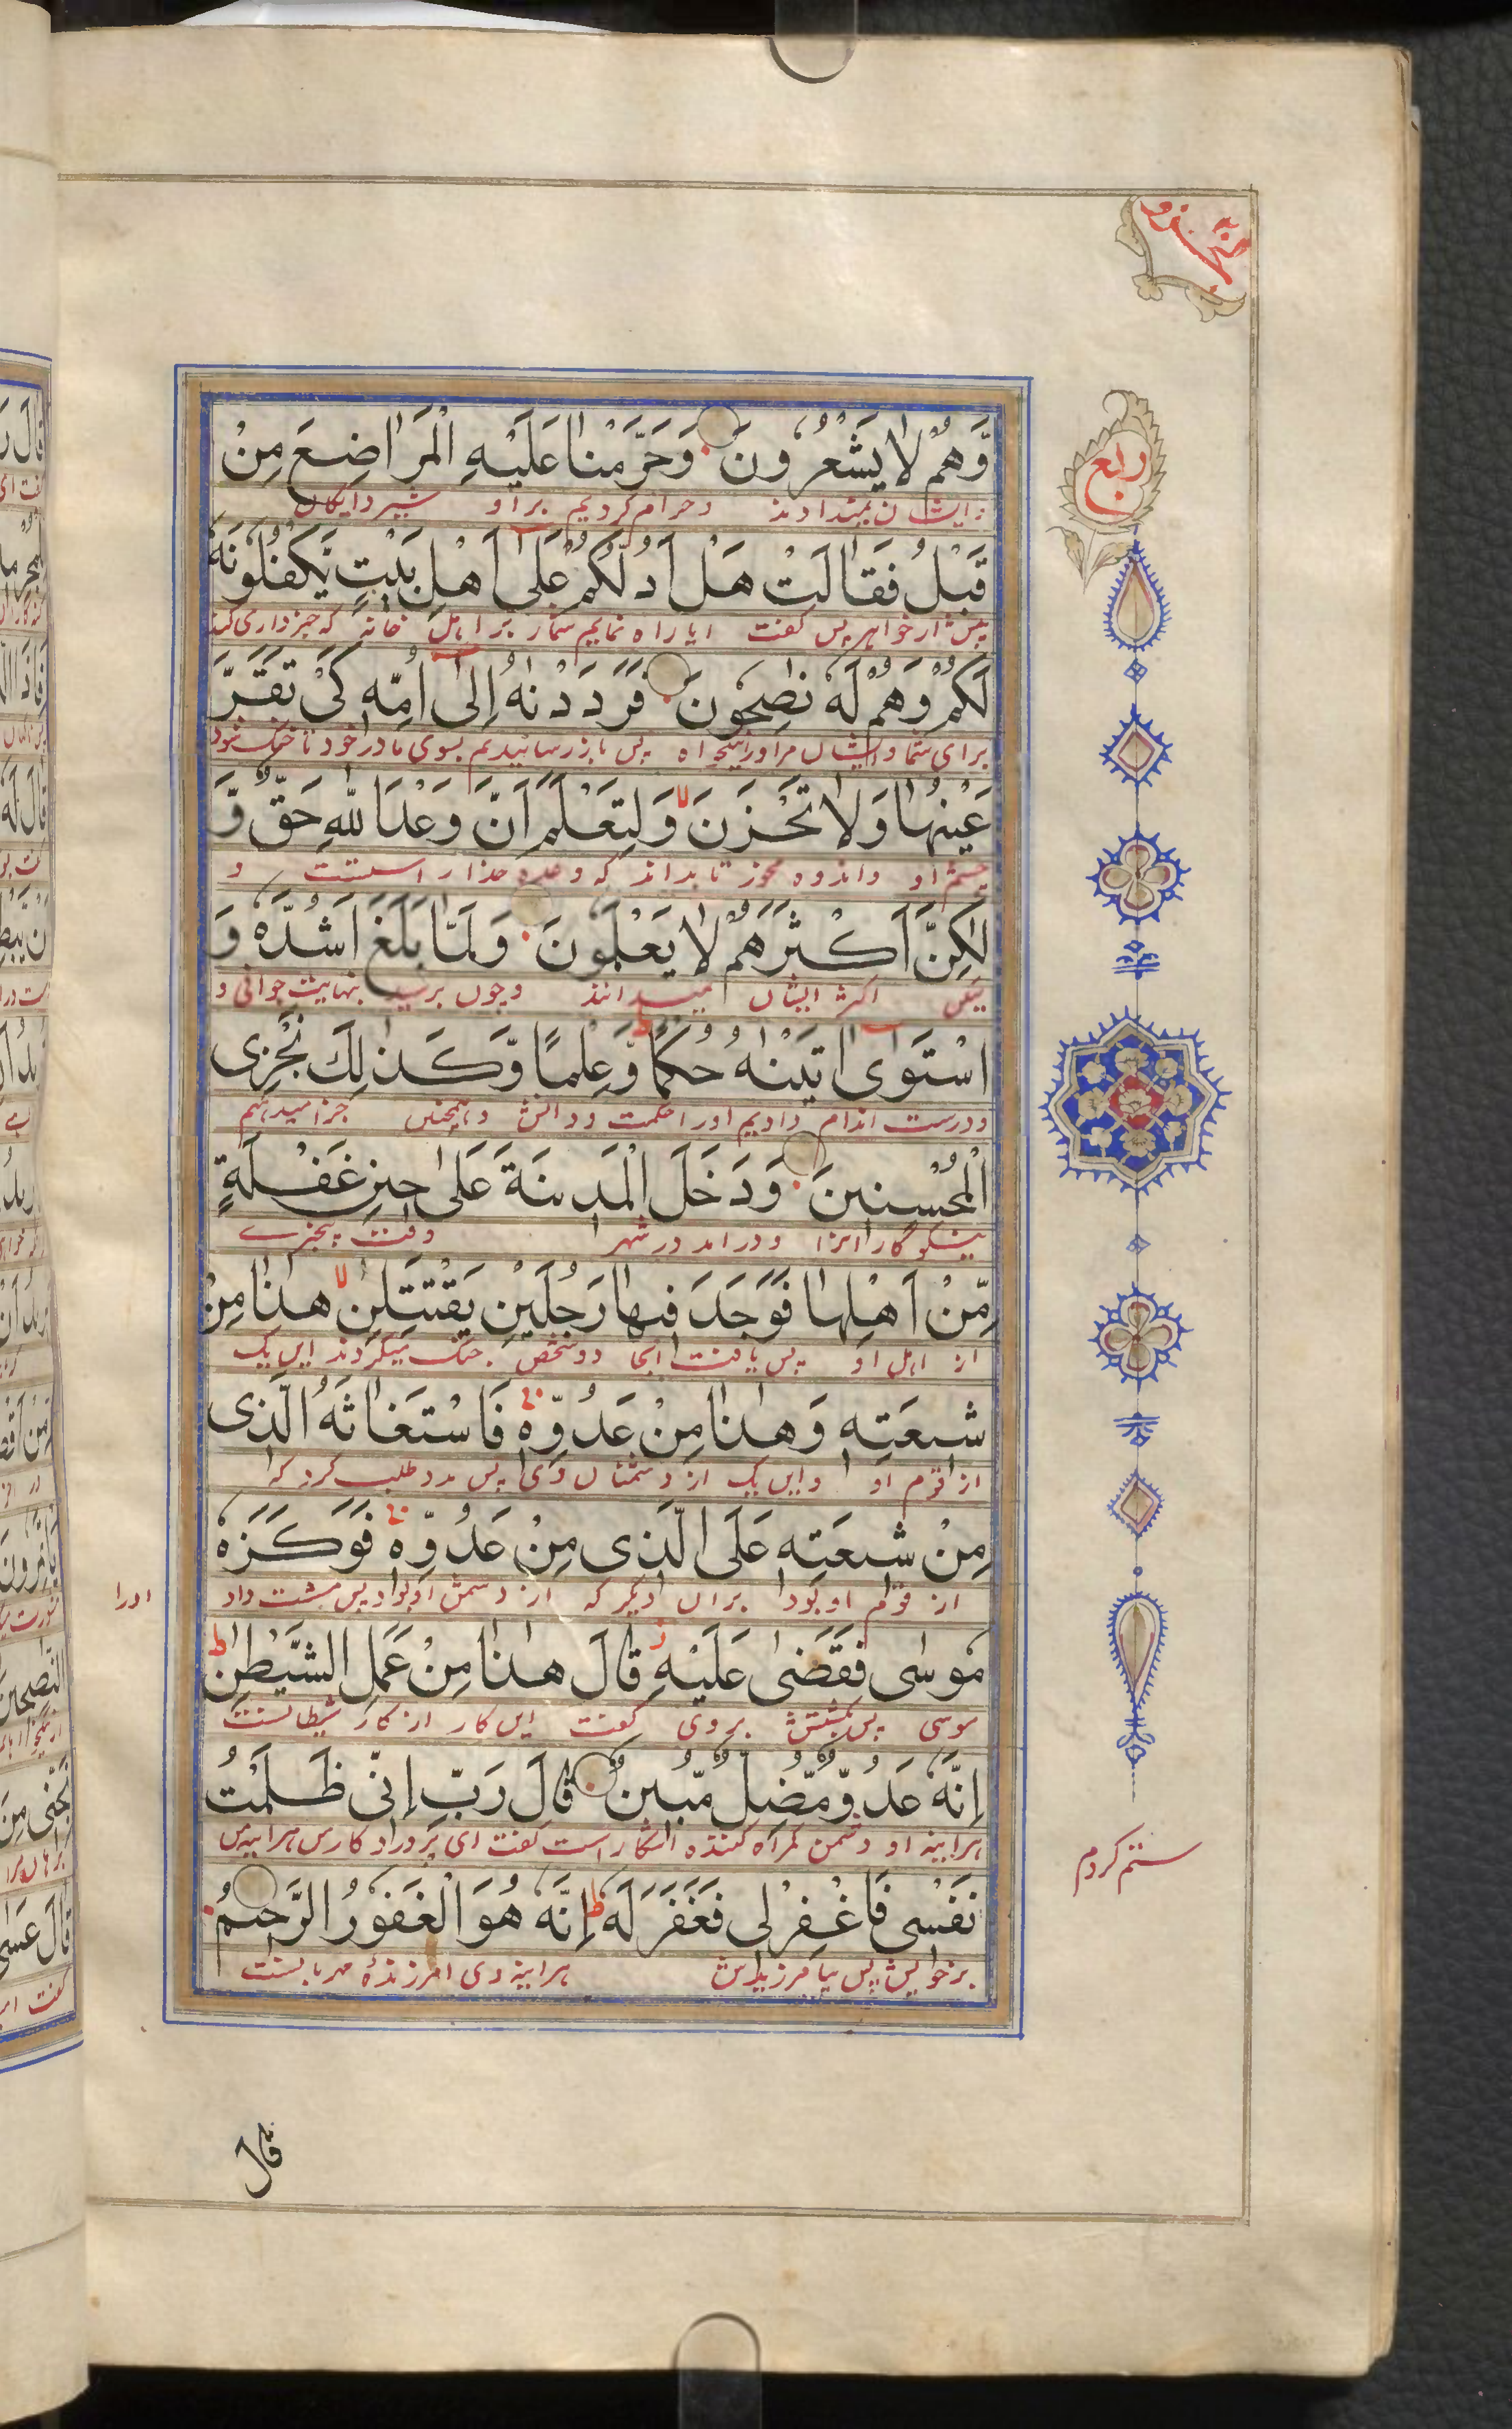 ربع
وَّهُمْ لَا يَشْعُرُونَ وَحَرَّمْنَا عَلَيْهِ الْمَرَاضِعَ مِنْ
وایشان نمیدانند وحرام کردیم بر او شیر دایگان
قَبْلُ فَقَالَتْ هَلْ اَدُلُّكُمْ عَلٰٓى اَهْلِ بَيْتٍ يَّكْفُلُوْنَهٗ
پیش از خواهر پس گفت ایا راه نمایم شمارا بر اهل خانهٔ که خبرداری کنند
لَكُمْ وَهُمْ لَهٗ نٰصِحُوْنَ فَرَدَدْنٰهُ اِلٰٓى اُمِّهٖ كَىْ تَقَرَّ
برای شما وایشان مر اورا نیکخواه پس باز رسانیدیم بسوی مادر خود تا خنک شود
عَيْنُهَا وَلَا تَحْزَنَ وَلِتَعْلَمَ اَنَّ وَعْدَ اللّٰهِ حَقٌّ وَّ
چشم او واندوه نخورد تا بداند که وعده خدا راست است و
لٰكِنَّ اَكْثَرَهُمْ لَا يَعْلَمُوْنَ وَلَمَّا بَلَغَ اَشُدَّهٗ وَ
لیکن اکثر ایشان نمیدانند وچون برسید بنهایت جوانی و
اسْتَوٰٓى اٰتَيْنٰهُ حُكْمًا وَّعِلْمًا وَّكَذٰلِكَ نَجْزِى
ودرست اندام دادیم اورا حکمت ودانش وهمچنین جزا میدهیم
الْمُحْسِنِيْنَ وَدَخَلَ الْمَدِيْنَةَ عَلٰى حِيْنِ غَفْلَةٍ
نیکوکارانرا ودرامد در شهر وقت بیخبرے
مِّنْ اَهْلِهَا فَوَجَدَ فِيْهَا رَجُلَيْنِ يَقْتَتِلٰنِ هٰذَا مِنْ
از اهل او پس یافت انجا دو شخص جنگ میکردند این یک
شِيْعَتِهٖ وَهٰذَا مِنْ عَدُوِّهٖ فَاسْتَغَاثَهُ الَّذِى
از قوم او واین یک از دشمنان وی پس مدد طلب کرد که
مِنْ شِيْعَتِهٖ عَلَى الَّذِى مِنْ عَدُوِّهٖ فَوَكَزَهٗ
از قوم او بود بران دیگر که از دشمن او بود پس مشت داد
اورا
مُوْسٰى فَقَضٰى عَلَيْهِ قَالَ هٰذَا مِنْ عَمَلِ الشَّيْطٰنِ
موسی پس بکشتش بروی گفت این کار از کار شیطانست
اِنَّهٗ عَدُوٌّ مُّضِلٌّ مُّبِيْنٌ قَالَ رَبِّ اِنِّى ظَلَمْتُ
هرایینه او دشمن گمراه کننده اشکار است گفت ای پروردگار من هرایینه من
ستم کردم
نَفْسِى فَاغْفِرْ لِى فَغَفَرَ لَهٗ اِنَّهٗ هُوَ الْغَفُوْرُ الرَّحِيْمُ
بر خویش پس بیامرزیدش هرایینه وی امرزندهٔ مهربانست
قال